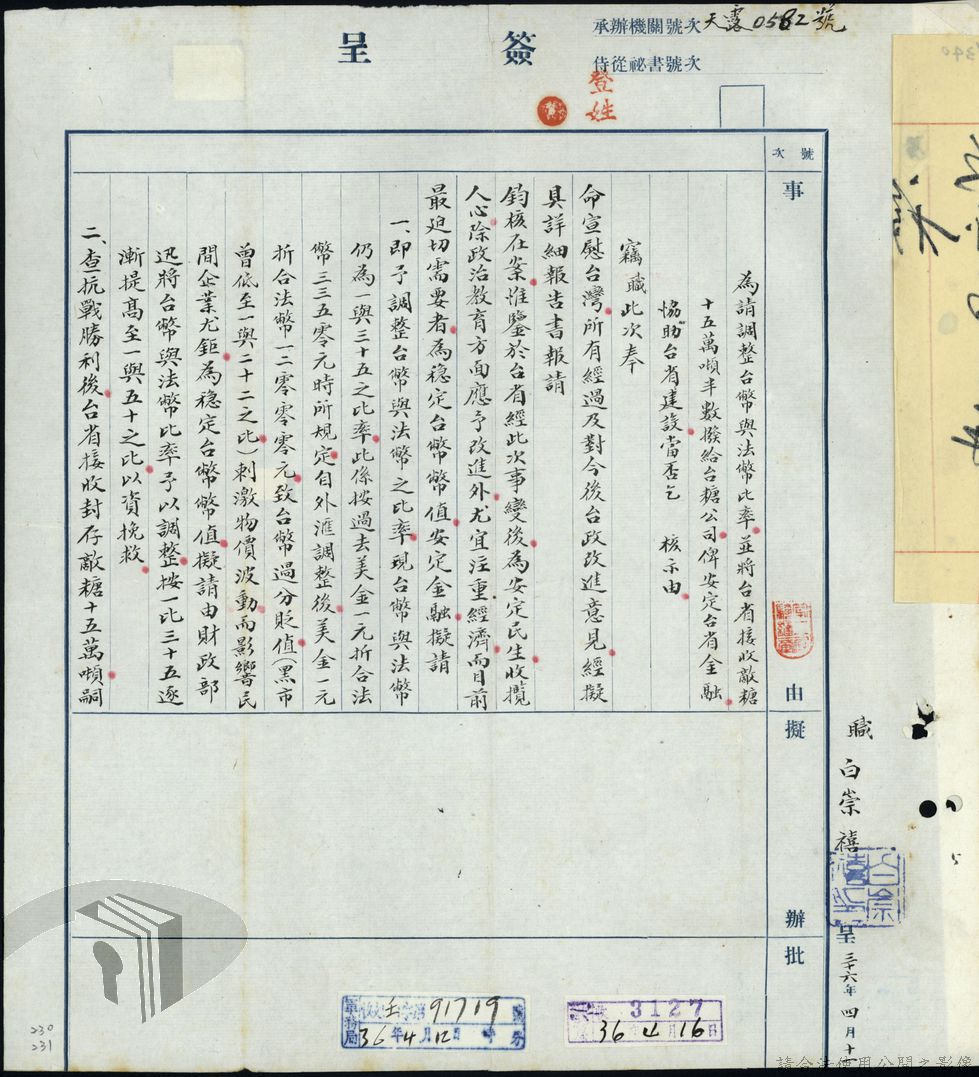 簽呈
承辦機關號次 天露0582號
侍從祕書號次
登姓
號次
事由
擬辦
批
為請調整台幣與法幣比率並將台省接收敵糖
十五萬噸半數撥給台糖公司俾安定台省金融
協助台省建設當否乞 核示由
竊職此次奉
命宣慰台灣所有經過及對今後台政改進意見經擬
具詳細報告書報請
鈞核在案惟鑒於台省經此次事變後為安定民生收攬
人心除政治教育方面應予改進外尤宜注重經濟而目前
最迫切需要者為穩定台幣幣值安定金融擬請
一、即予調整台幣與法幣之比率現台幣與法幣
仍為一與三十五之比率此係按過去美金一元折合法
幣三三五零元時所規定自外滙調整後美金一元
折合法幣一二零零零元致台幣過分貶值(黑市
曾低至一與二十二之比)刺激物價波動而影響民
間企業尤鉅為穩定台幣幣值擬請由財政部
迅將台幣與法幣比率予以調整按一比三十五逐
漸提高至一與五十之比以資挽救
二、查抗戰勝利後台省接收封存敵糖十五萬噸嗣
職 白崇禧
呈 三十六年四月十
白崇禧印
軍務局
91719
36年4月12日
3127
36 4 16日
230
231
請合法使用公開之影像